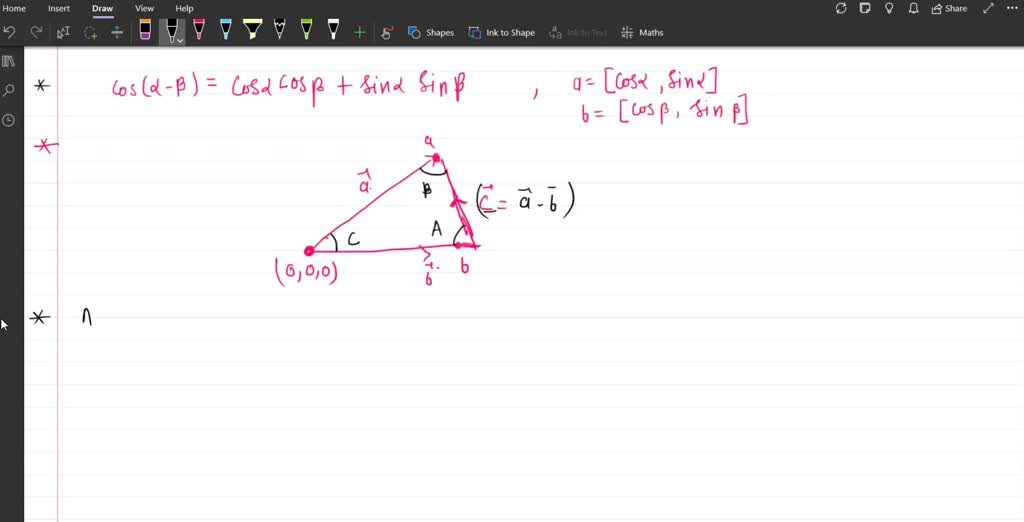 Home Insert Draw View Help Share
Shapes Ink to Shape Ink to Text Maths
* cos(α-β) = cosα cosβ + sinα sinβ , a = [cosα, sinα]
b = [cosβ, sinβ]
*
a
a⃗
B
(c⃗ = a⃗ - b̄)
A
C
(0,0,0)
b⃗
b
* Λ